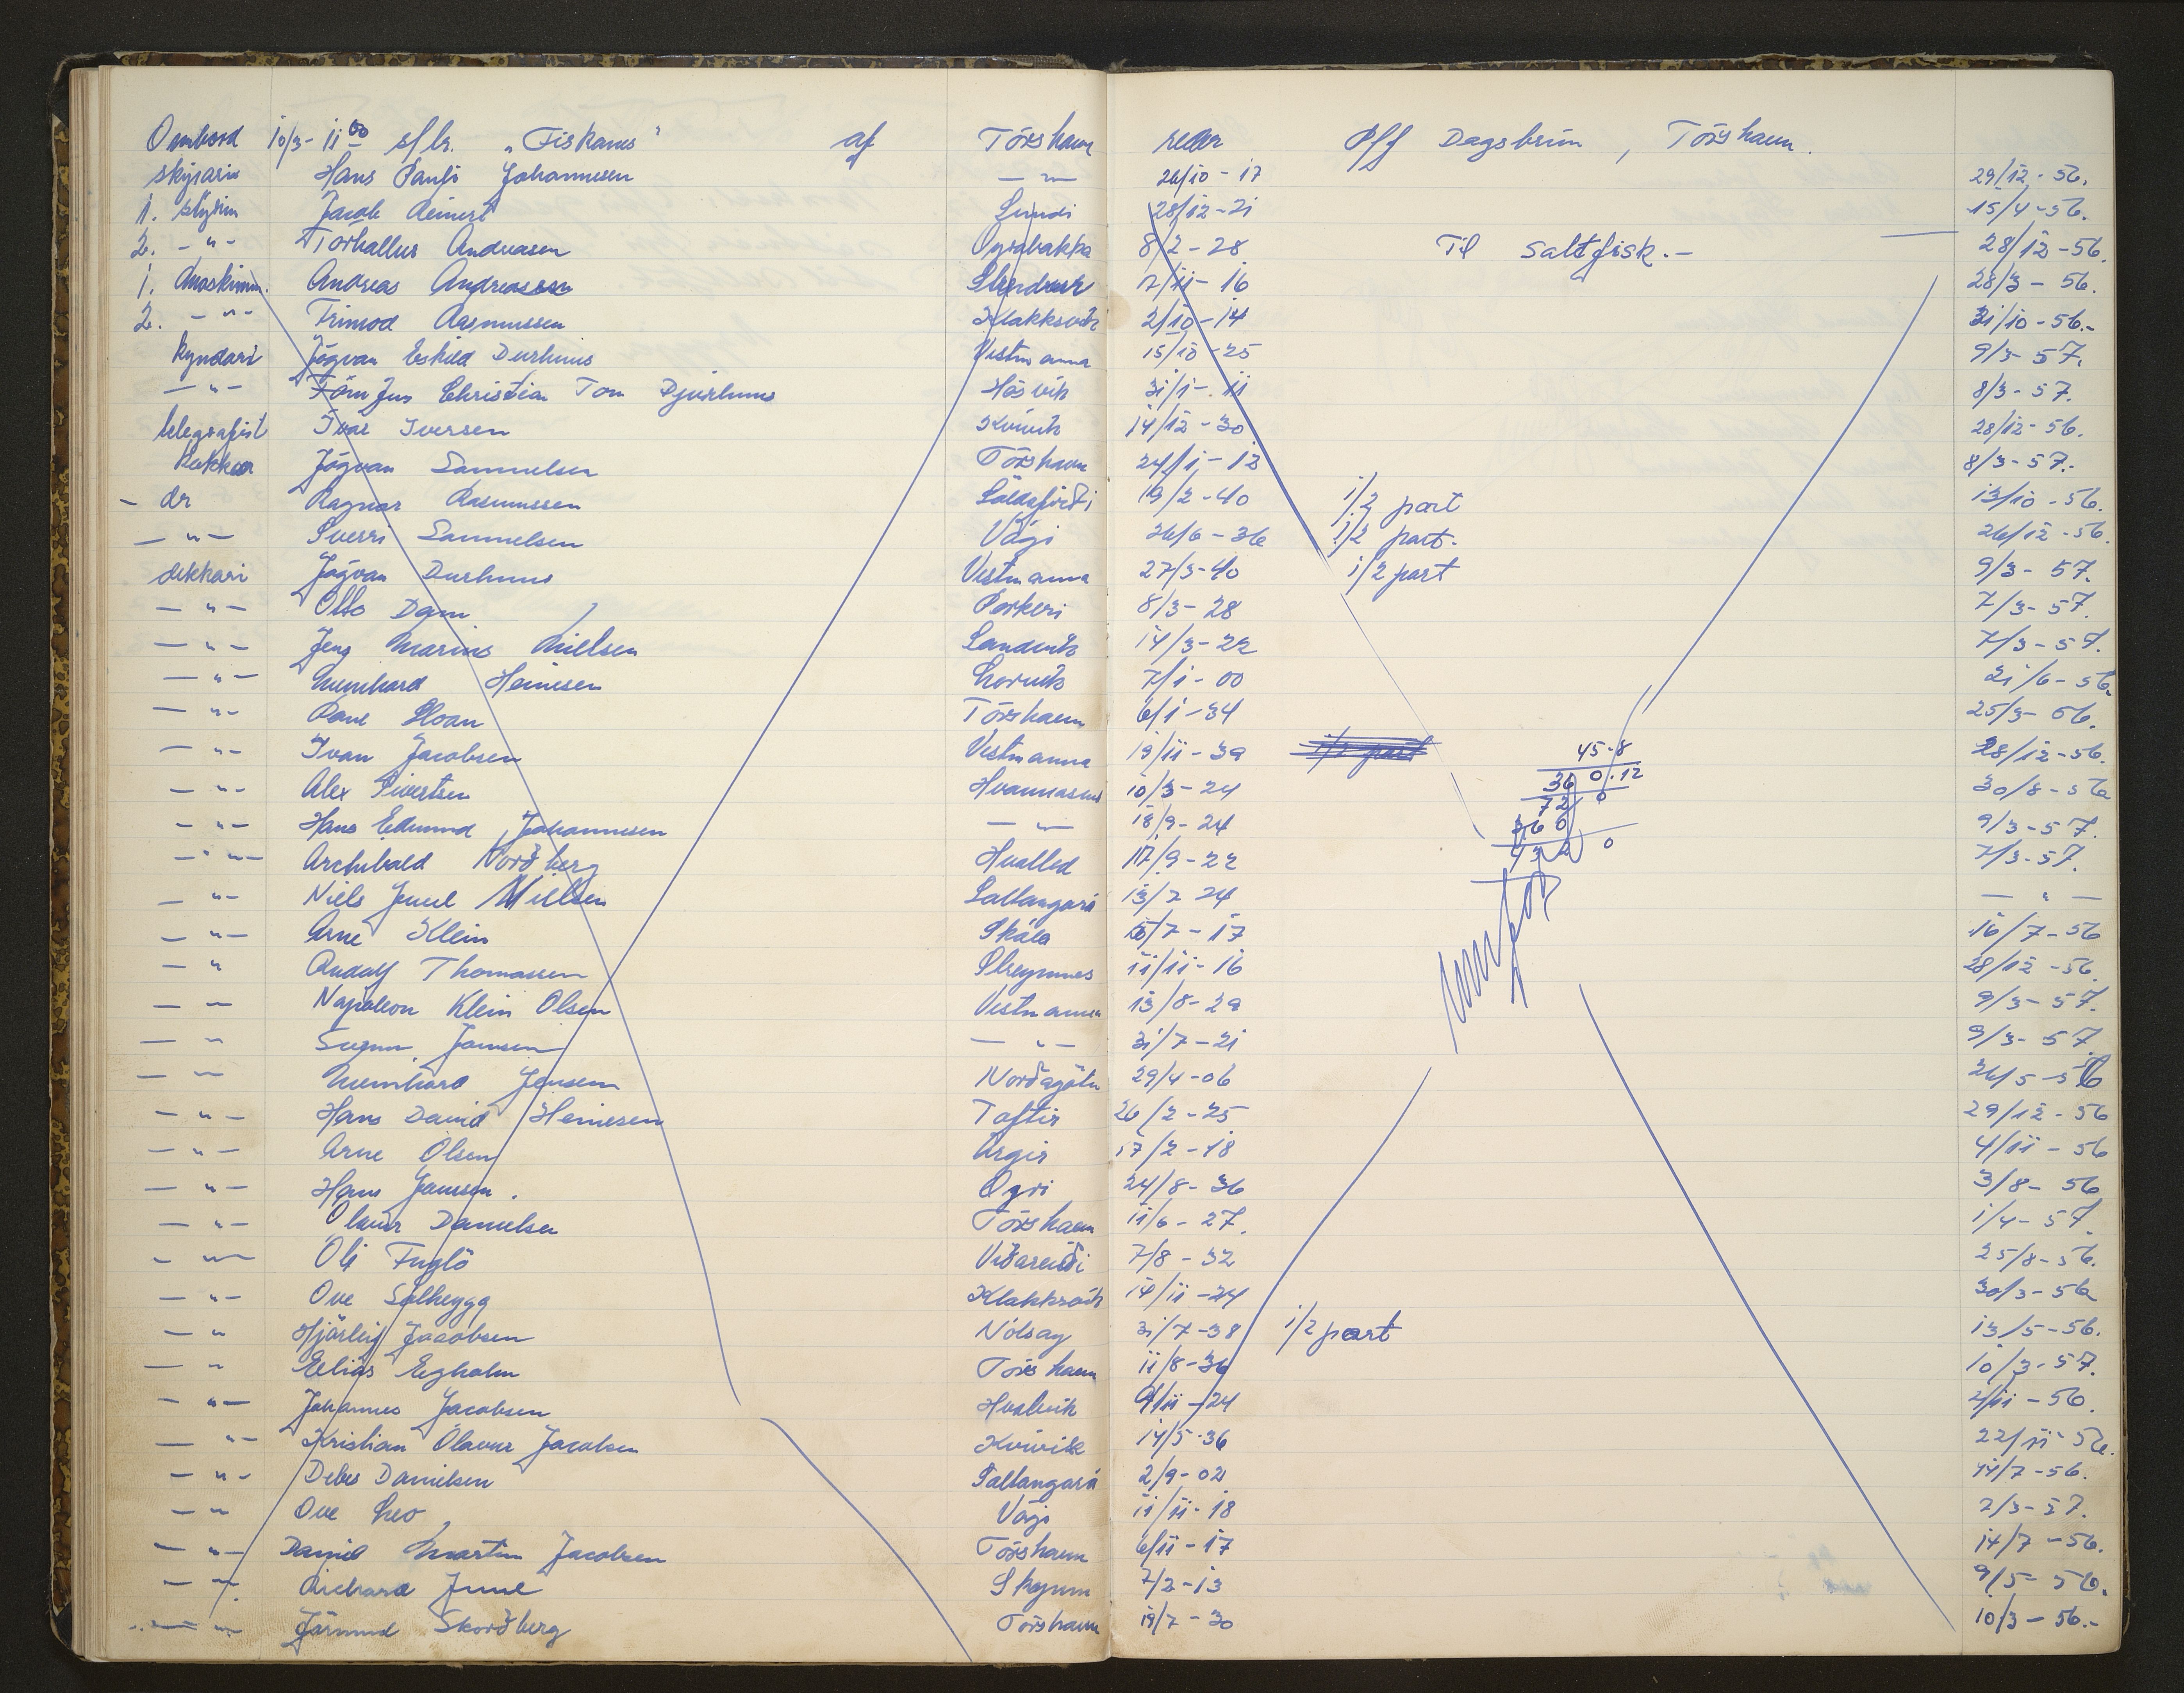 Ombord 10/3- 11 00 s/lr. "Fiskanes" af Tórshavn reder P/f Dagsbrún, Tórshavn.
skiparin Hans Pauli Johannesen — " — 26/10 - 17 29/12 - 56.
1. stýrim Jacob Reinert Sundi 28/12 - 21 15/4 - 56.
2. - " - Tórhallur Andreasen Oyrabakka 8/2 - 28 Til saltfisk. - 28/12 - 56.
1. maskinm. Andreas Andreasen Strendur 7/11 - 16 28/3 - 56.
2. - " - Trimod Rasmussen Klakksvík 2/10 - 14 31/10 - 56. -
kyndari Jógvan Eskild Durhuus Vestmanna 15/10 - 25 9/3 - 57.
— " — Jens Christian Tom Djurhuus Hósvík 31/1 - 11 8/3 - 57.
telegrafist Ivar Iversen Kvívík 14/12 - 30 28/12 - 56.
kokkur Jógvan Samuelsen Tórshavn 24/1 - 13 8/3 - 57. -
- dr Ragnar Rasmussen Søldafirði 19/2 - 40 1/2 part 13/10 - 56.
— " — Sverri Samuelsen Vági 26/6 - 36 1/2 part. 26/12 - 56.
dekkari Jógvan Durhuus Vestmanna 27/3 - 40 1/2 part 9/3 - 57.
— " — Otto Dam Porkeri 8/3 - 28 7/3 - 57.
— " — Jens Marius Nielsen Sandvík 14/3 - 22 7/3 - 57.
— " — Meinhard Heinesen Lorvík 7/1 - 00 21/6 - 56.
— " — Pave Sloan Tórshavn 6/1 - 34 25/3 - 56.
— " — Ivan Jacobsen Vestmanna 19/11 - 39 1/2 part 28/12 - 56.
— " — Alex Sivertsen Hvannasund 10/3 - 24 30/8 - 56
— " — Hans Edmund Johannesen — " — 18/9 - 24 9/3 - 57.
— " — Archibald Norðberg Hvalled 17/9 - 22 7/3 - 57.
45.8
36 0.12
72 0
360
432 0
— " — Niels Juul Nielsen Saltangará 13/2 24 — " —
— " — Arne Klein Skála 16/7 - 17 16/7 - 56
— " Rudolf Thomassen Streymnes 11/11 - 16 28/12 - 56.
— " — Napoleon Klein Olsen Vestmanna 13/8 - 29 9/3 - 57.
— " — Jansen — " — 31/7 - 21 9/3 - 57.
— " — Meinhard Jensen Norðagøtu 29/4 - 06 26/5 - 56
— " — Hans David Heinesen Toftir 26/2 - 25 29/12 - 56
— " — Arne Olsen Argir 17/2 - 18 4/11 - 56
— " — Hans Jansen. Oyri 24/8 - 36 3/8 - 56
— " — Olavur Danielsen Tórshavn 11/6 - 27. 1/4 - 57.
- " — Oli Fuglö Viðareiði 7/8 - 32 25/8 - 56.
— " — Ove Sólheygg Klakksvík 14/11 - 24 30/3 - 56
— " Hjárleif Jacobsen Nólsoy 31/7 - 38 1/2 part 13/5 - 56.
— " Eelias Egholm Tórshavn 11/8 - 36 10/3 - 57.
- " — Johannes Jacobsen Hvalvík 9/11 - 24 2/11 - 56.
— " — Kristian Ólavur Jacobsen Kvívík 14/5 - 36 22/11 - 56.
— " — Debes Danielsen Saltangará 2/9 - 02 14/7 - 56.
— " Ove Leo Vági 11/11 - 18 2/3 - 57.
— " — David Martin Jacobsen Tórshavn 6/11 - 17 14/7 - 56.
— " Richard Juul Skopun 7/2 - 13 9/5 - 56.
— " — Jármund Skorðberg Tórshavn 19/7 - 30 10/3 - 56. -